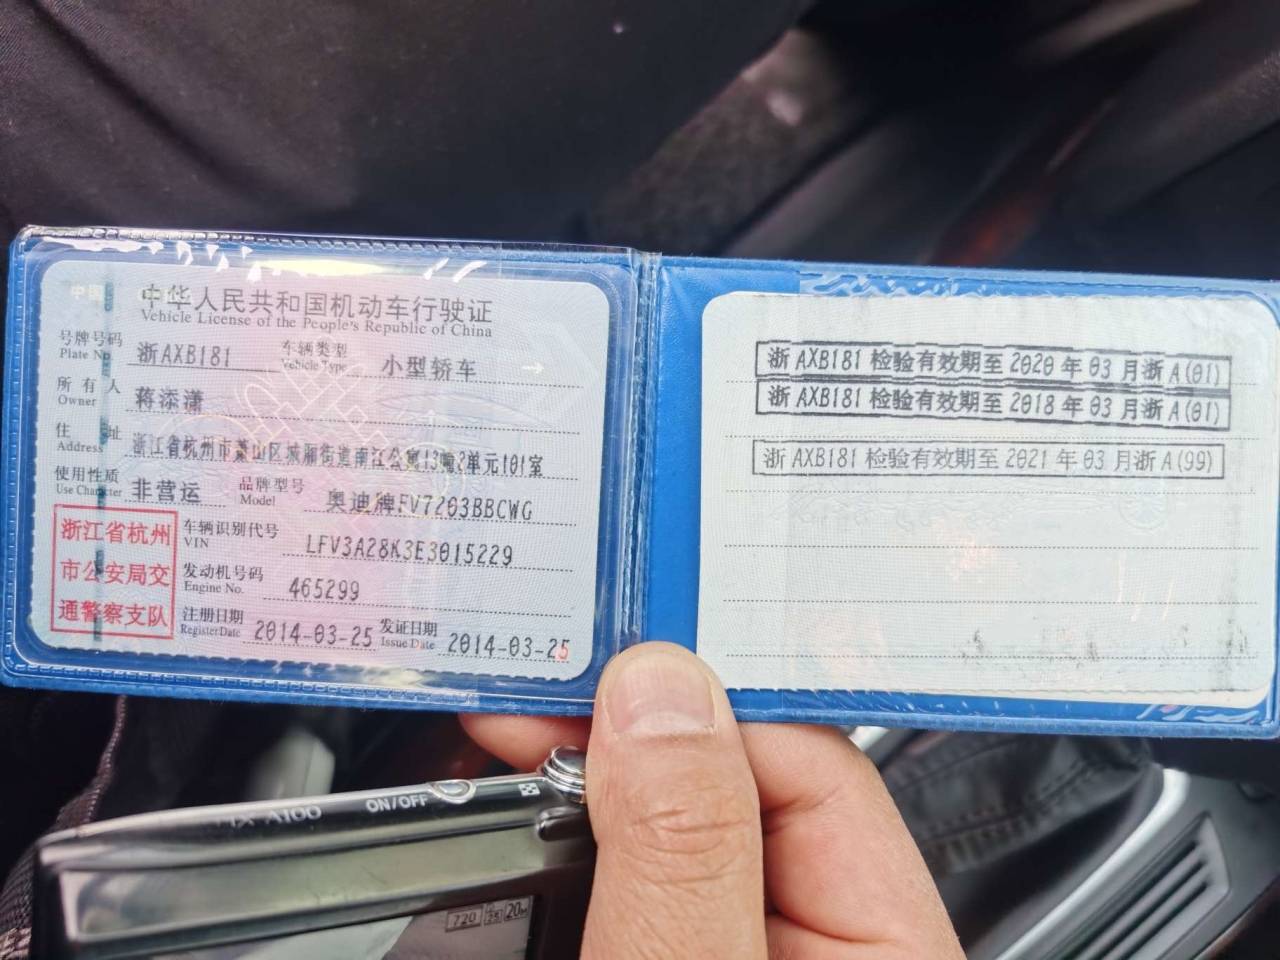 中华人民共和国机动车行驶证
Vehicle License of the People's Republic of China
号牌号码 浙AXB181 车辆类型 小型轿车
Plate No. Vehicle Type
所有人 蒋添潇
Owner
住址 浙江省杭州市萧山区城厢街道南江公寓13幢2单元101室
Address
使用性质 非营运 品牌型号 奥迪牌FV7203BBCWG
Use Character Model
浙江省杭州
市公安局交
通警察支队
车辆识别代号 LFV3A28K3E3015229
VIN
发动机号码 465299
Engine No.
注册日期 2014-03-25 发证日期 2014-03-25
Register Date Issue Date
浙AXB181检验有效期至2020年03月浙A(01)
浙AXB181检验有效期至2018年03月浙A(01)
浙AXB181检验有效期至2021年03月浙A(99)
A100 ON/OFF
720 20M